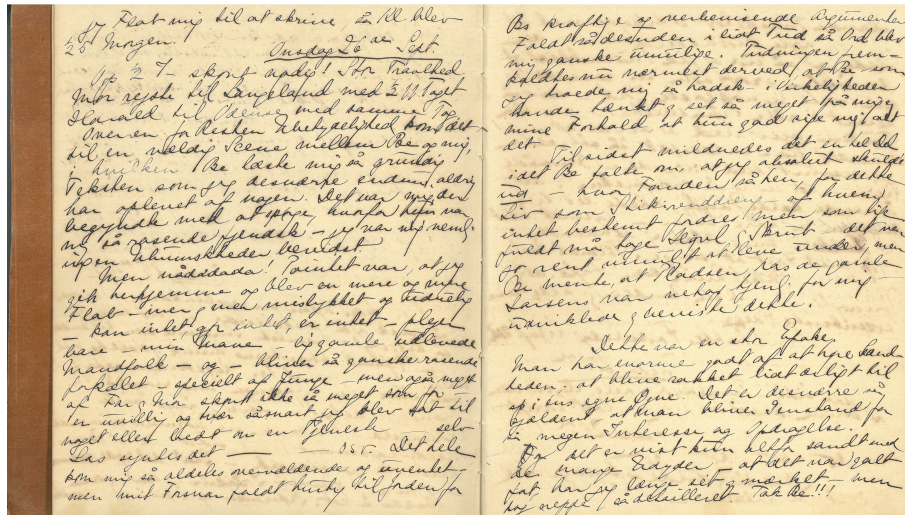 jeg Flot mig til at skrive, så Kl blev
½5 Morgen.
Onsdag 26 Sept.
Op ½ 7 – skønt nødig! Stor Travlhed
Mor rejste til Langeland med 2 Toget
Harald til Odense med samme Tog
Over en for Resten Ubetydelighed kom det
til en vældig Scene mellem Be og mig,
i hvilken Be læste mig så grundig
Teksten som jeg desværre endnu aldrig
har oplevet af nogen. Det var mig der
begyndte med at spørge, hvorfor hun var
mig så rasende fjendsk – jeg var mig nemlig
ingen bevidst
Men nådada! var, at jeg
gik herhjemme og blev en mere og mere
– mer og mer mislykket og
– kan intet gør intet, er intet – plejer
bare – min Mave – udlevede
Mandfolk – og – bliver så ganske rasende
forkælet – specielt af Junge – men også meget
af Far, Mor skønt ikke så meget som før
er uvillig og tvær såsnart jeg blev sat til
noget eller bedt om en Tjeneste selv
Las synles det – osv. Det hele
kom mig så aldeles overvældende og uventet
men mit Forsvar faldt hurtig til Jorden for
Bes kraftige og overbevisende Argumenter
Faldt så desuden i liat Tud så Ord blev
mig ganske umulige. Tudningen frem-
kaldtes nu nærmest derved, at Be som
jeg troede mig så hadsk – i Virkeligheden
havde tænkt og set så meget på mig og
mine Forhold, at hun gad sige mig alt
det.
Til sidst mildnedes det en hel Del
idet Be talte om, at jeg absolut skulde
ud – hvor Fanden så hen, for dette
Liv som hvem
intet bestemt fordres men som
fuldt må tage det var
jo rent umuligt at leve under, men
Be mente, at Pladsen hos de gamle
Larsens var netop for mig
dette.
Dette var en stor Epoke
Man har enorme godt af at høre Sand-
heden. at blive rakket liat ærligt til
i ens egne Øjne. Det er desværre så
sjældent at man bliver Genstand for
så megen Interesse og Opdragelse.
For det er vist kun altfor sandt med
de mange – at det var galt
fat har jeg længe set og mærket – men
dog neppe så detailleret Tak Be!!!